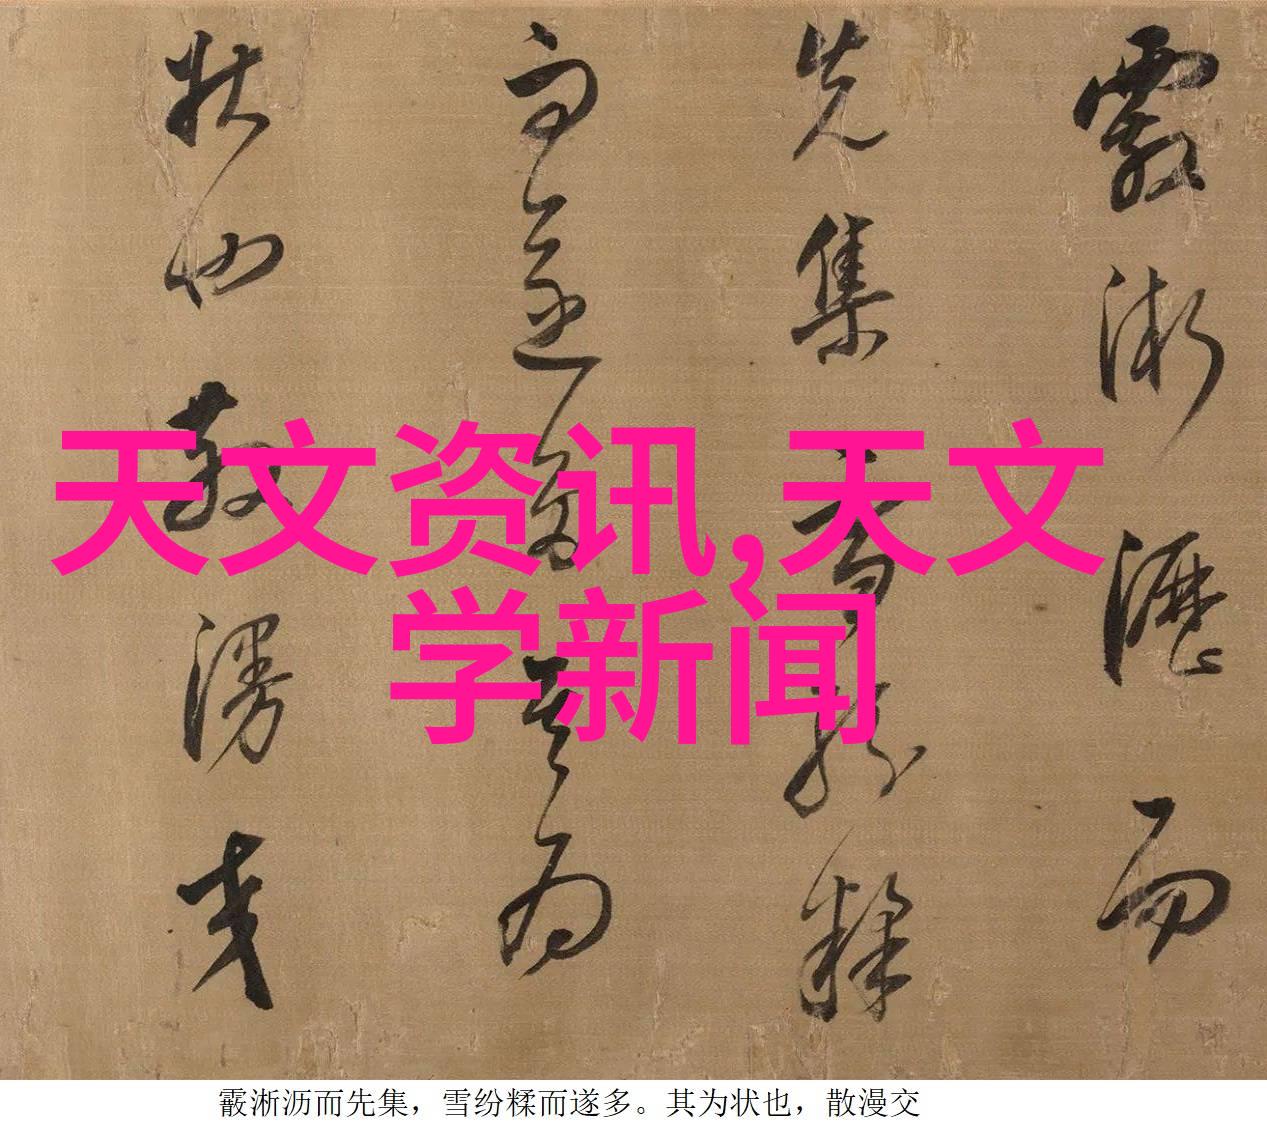 霰淅沥而
先集雪纷糅
而遂多其为
状也散漫交
天文资讯,天文
学新闻
霰淅沥而先集，雪纷糅而遂多。其为状也，散漫交